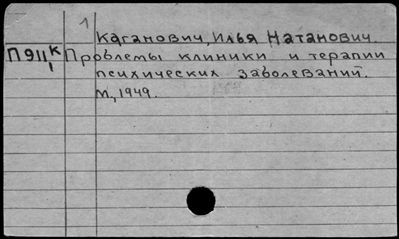 1
Каганович, Илья Натанович.
П911 К/1 Проблемы клиники и терапии
психических заболеваний.
М, 1949.